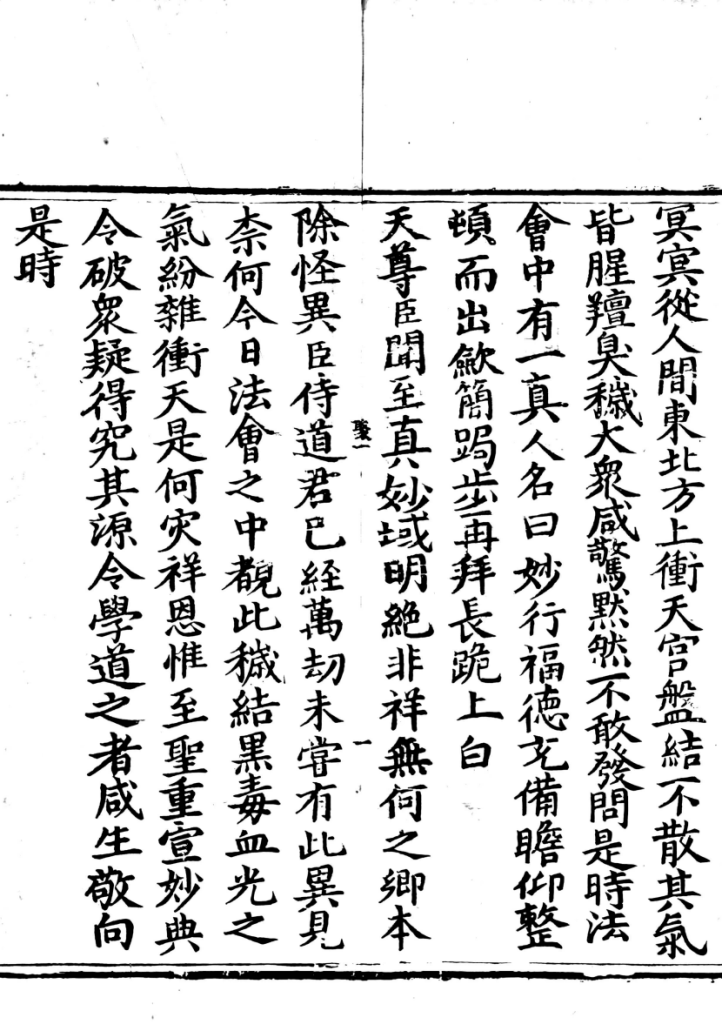 冥冥從人間東北方上衝天宫盤結不散其氣
皆腥羶臭穢大衆咸驚默然不敢發問是時法
會中有一真人名曰妙行福德充備瞻仰整
頓而出斂簡跼步再拜長跪上白
天尊臣聞至真妙域明絶非祥無何之鄉本
聖一
一
除怪異臣侍道君已経萬刼未嘗有此異見
柰何今日法會之中覩此穢結黒毒血光之
氣紛雜衝天是何灾祥恩惟至聖重宣妙典
令破衆疑得究其源令學道之者咸生敬向
是時